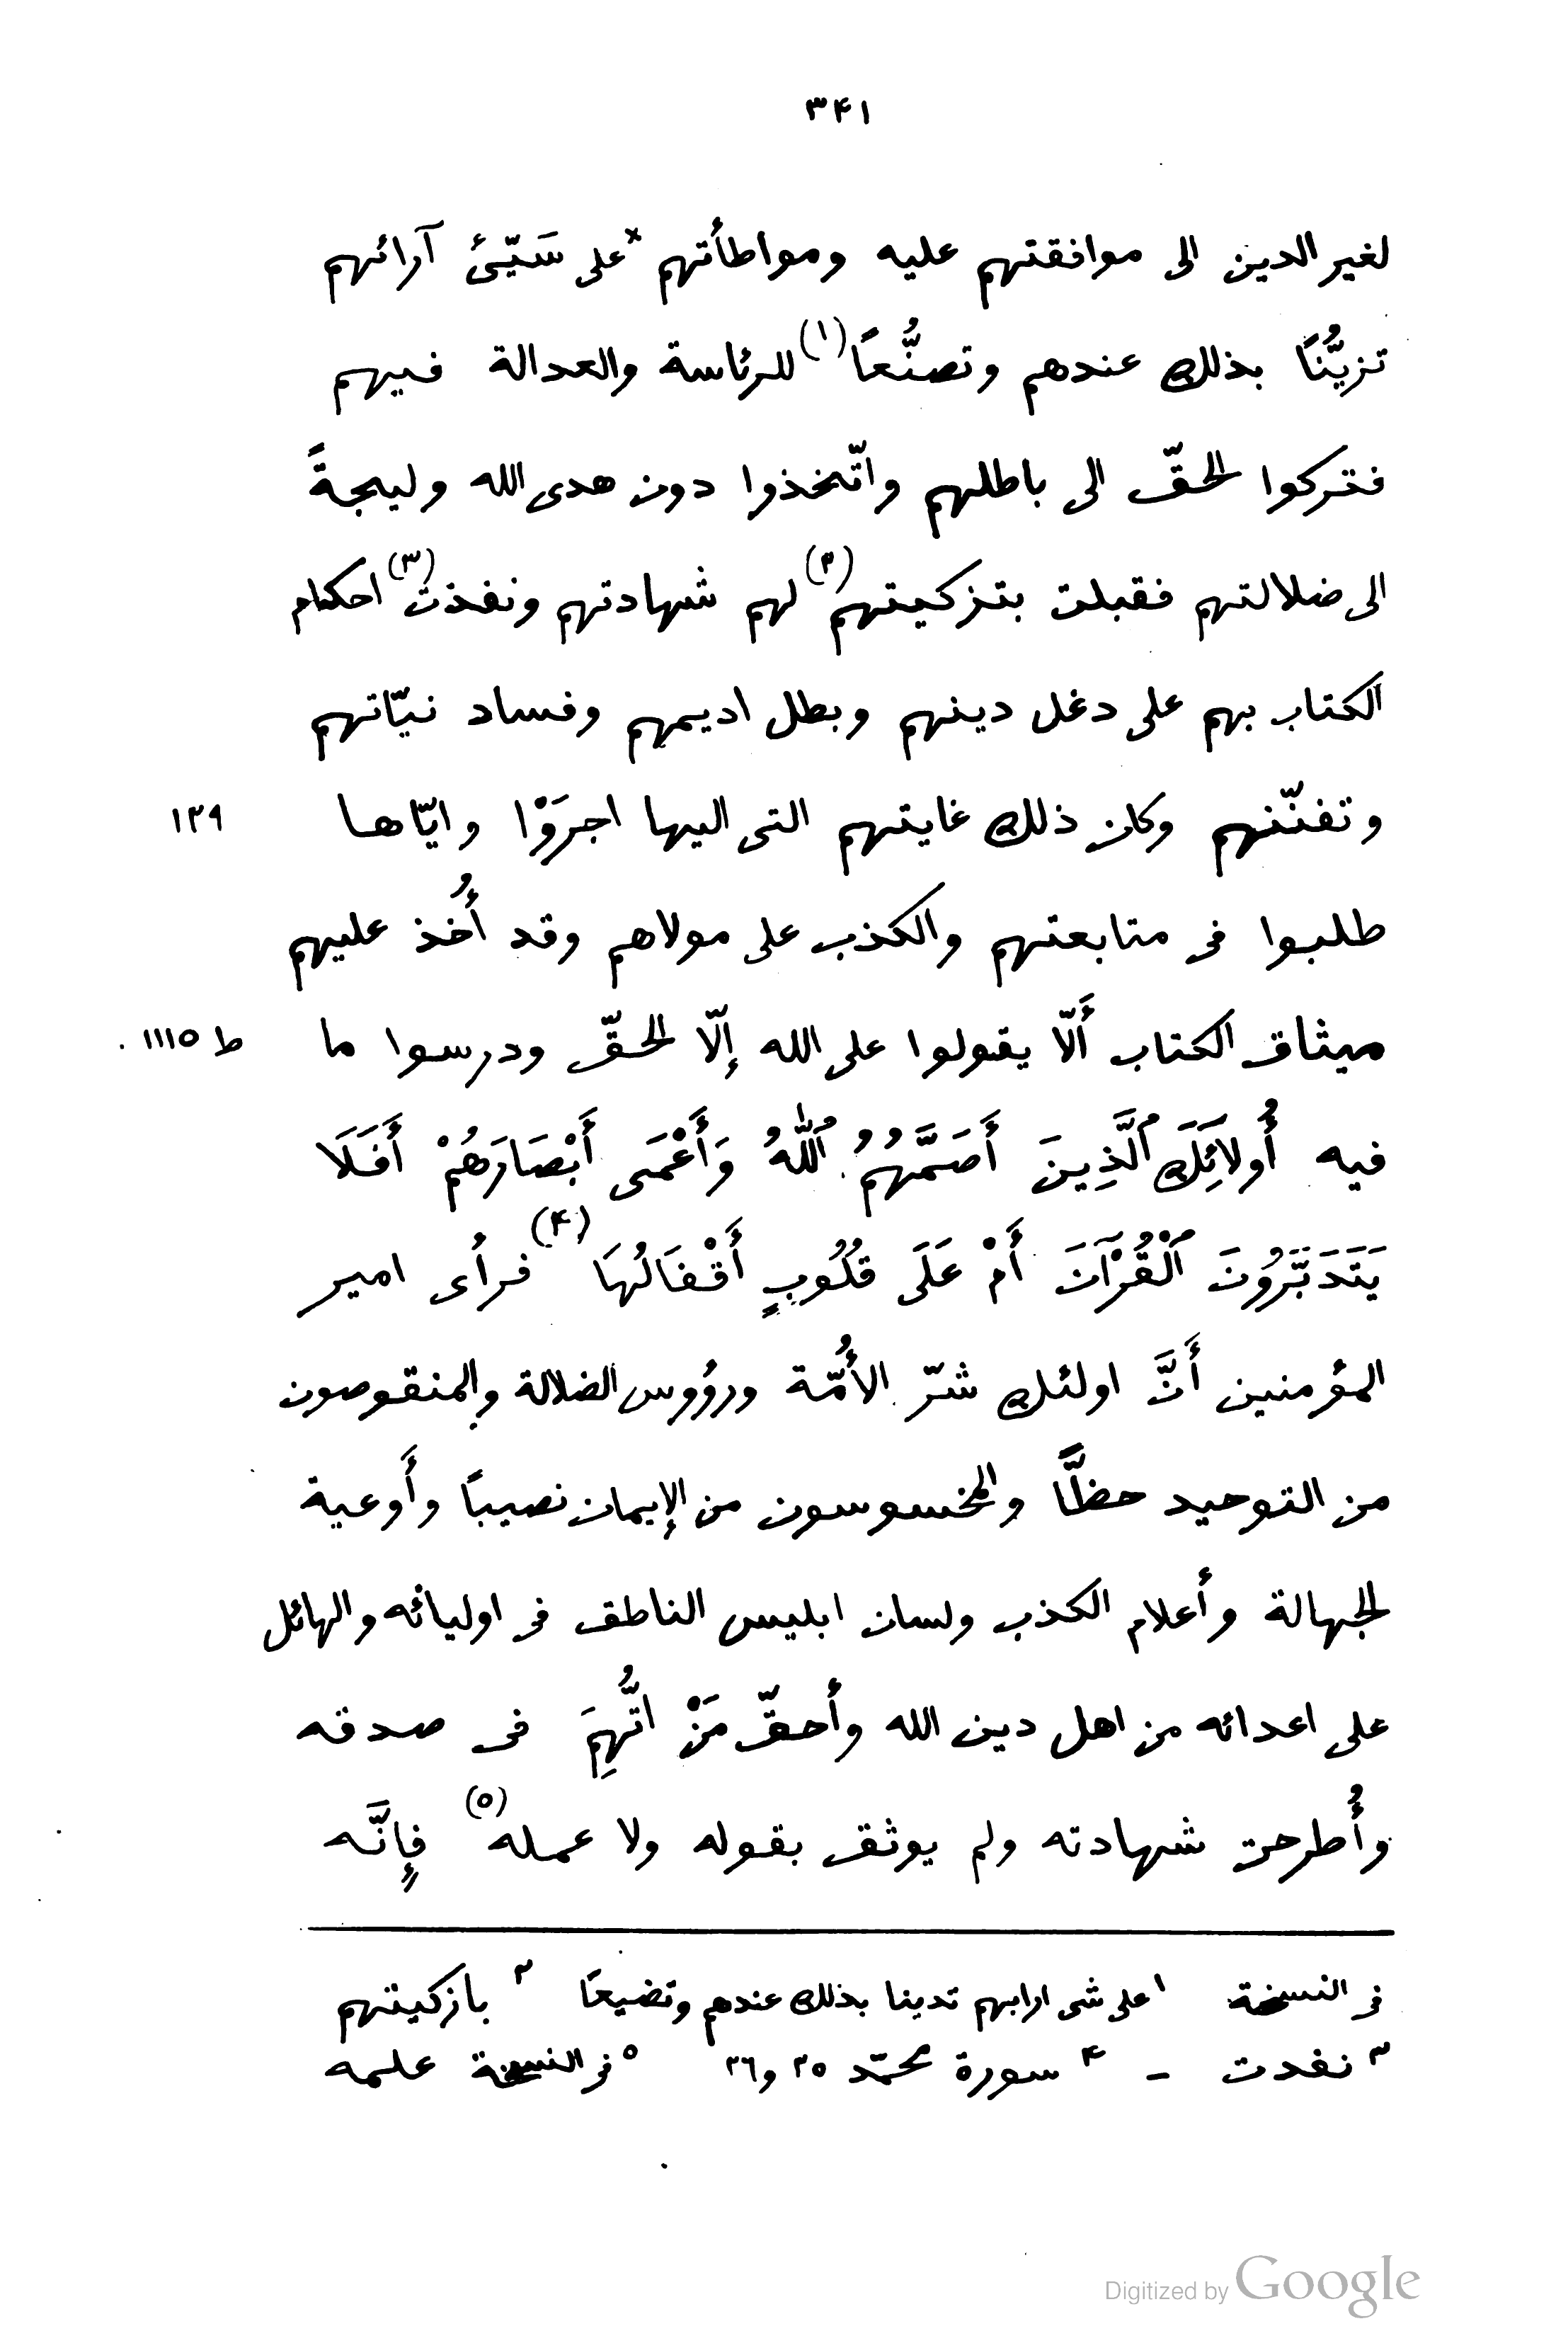 ۳۴۱
لغير الدين الى موافقتهم عليه ومواطأتهم * على سَيّئ آرائهم
تزيُّنًا بذلك عندهم وتصنُّعًا (١) للرئاسة والعدالة فيهم
فتركوا الحقّ الى باطلهم واتّخذوا دون هدى الله وليجةً
الى ضلالتهم فقبلت بتزكيتهم (٢) لهم شهادتهم ونفذت (٣) احكام
الكتاب بهم على دغل دينهم وبطل اديمهم وفساد نيّاتهم
وتفنّنهم وكان ذلك غايتهم التى اليها اجرَوْا وايّاها ١٣٩
طلبوا فى متابعتهم والكذب على مولاهم وقد أُخذ عليهم
ميثاق الكتاب أَلّا يقولوا على الله إلّا الحقّ ودرسوا ما ط ١١١٥
فيه أُولَائِكَ ٱلَّذِينَ أَصَمَّهُمُ ٱللهُ وَأَعْمَى أَبْصَارَهُمْ أَفَلَا
يَتَدَبَّرُونَ ٱلْقُرْآنَ أَمْ عَلَى قُلُوبٍ أَقْفَالُهَا (۴) فرأى امير
المؤمنين أَنَّ اولئك شرّ الأُمّة ورؤوس الضلالة والمنقوصون
من التوحيد حظًّا والمخسوسون من الإيمان نصيبًا وأَوعية
الجهالة وأعلام الكذب ولسان ابليس الناطق فى اوليائه والهائل
على اعدائه من اهل دين الله وأحقّ مَنْ اتُّهِمَ فى صدقه
وأُطرحت شهادته ولم يوثق بقوله ولا عمله (٥) فإنَّه
فى النسخة ١ على شى ارايهم تدينا بذلك عندهم وتضيعًا ٢ بازكيتهم
٣ نفدت - ۴ سورة محمّد ٢٥ و٢٦ ٥ فى النسخة علمه
Digitized by Google